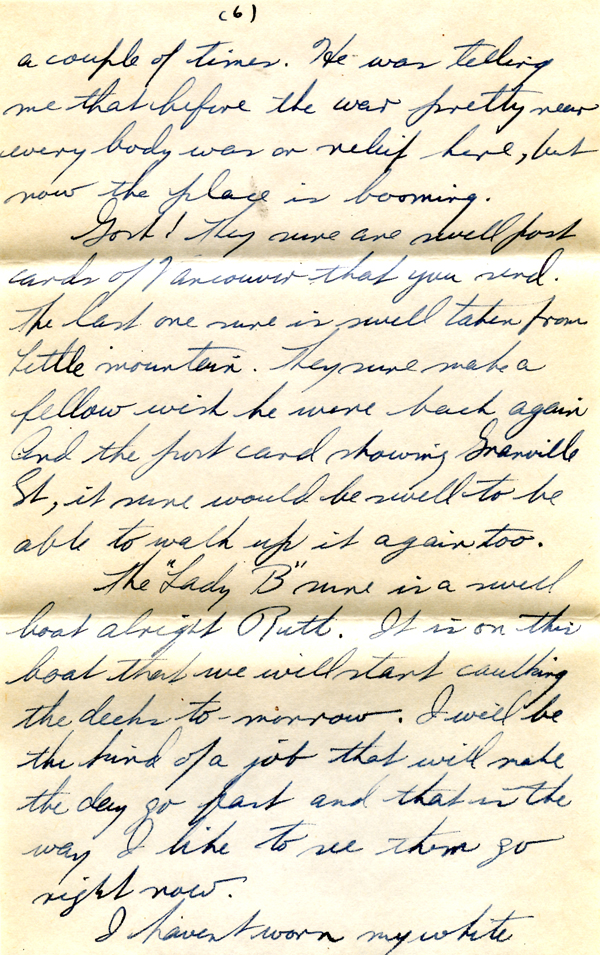 (6)
a couple of times. He was telling
me that before the war pretty near
every body was on relief here, but
now the place is booming.
Gosh! They sure are swell post
cards of Vancouver that you send.
The last one sure is swell taken from
Little mountain. They sure make a
fellow wish he were back again
And the post card showing Granville
St, it sure would be swell to be
able to walk up it again too.
The "Lady B" sure is a swell
boat alright Ruth. It is on this
boat that we will start caulking
the decks to-morrow. I will be
the kind of a job that will make
the day go fast and that is the
way I like to see them go
right now.
I havent worn my white